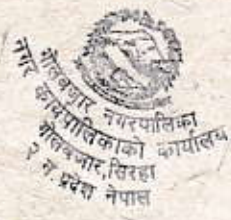 गोलबजार नगरपालिका
नगर कार्यपालिकाको कार्यालय
गोलबजार, सिरहा
२ न. प्रदेश नेपाल